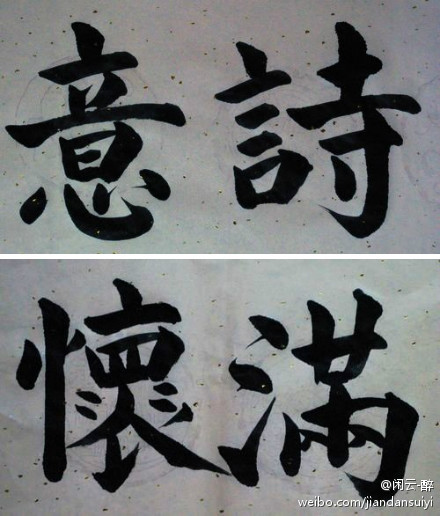 詩意
滿懷
@闲云-醉
weibo.com/jiandansuiyi